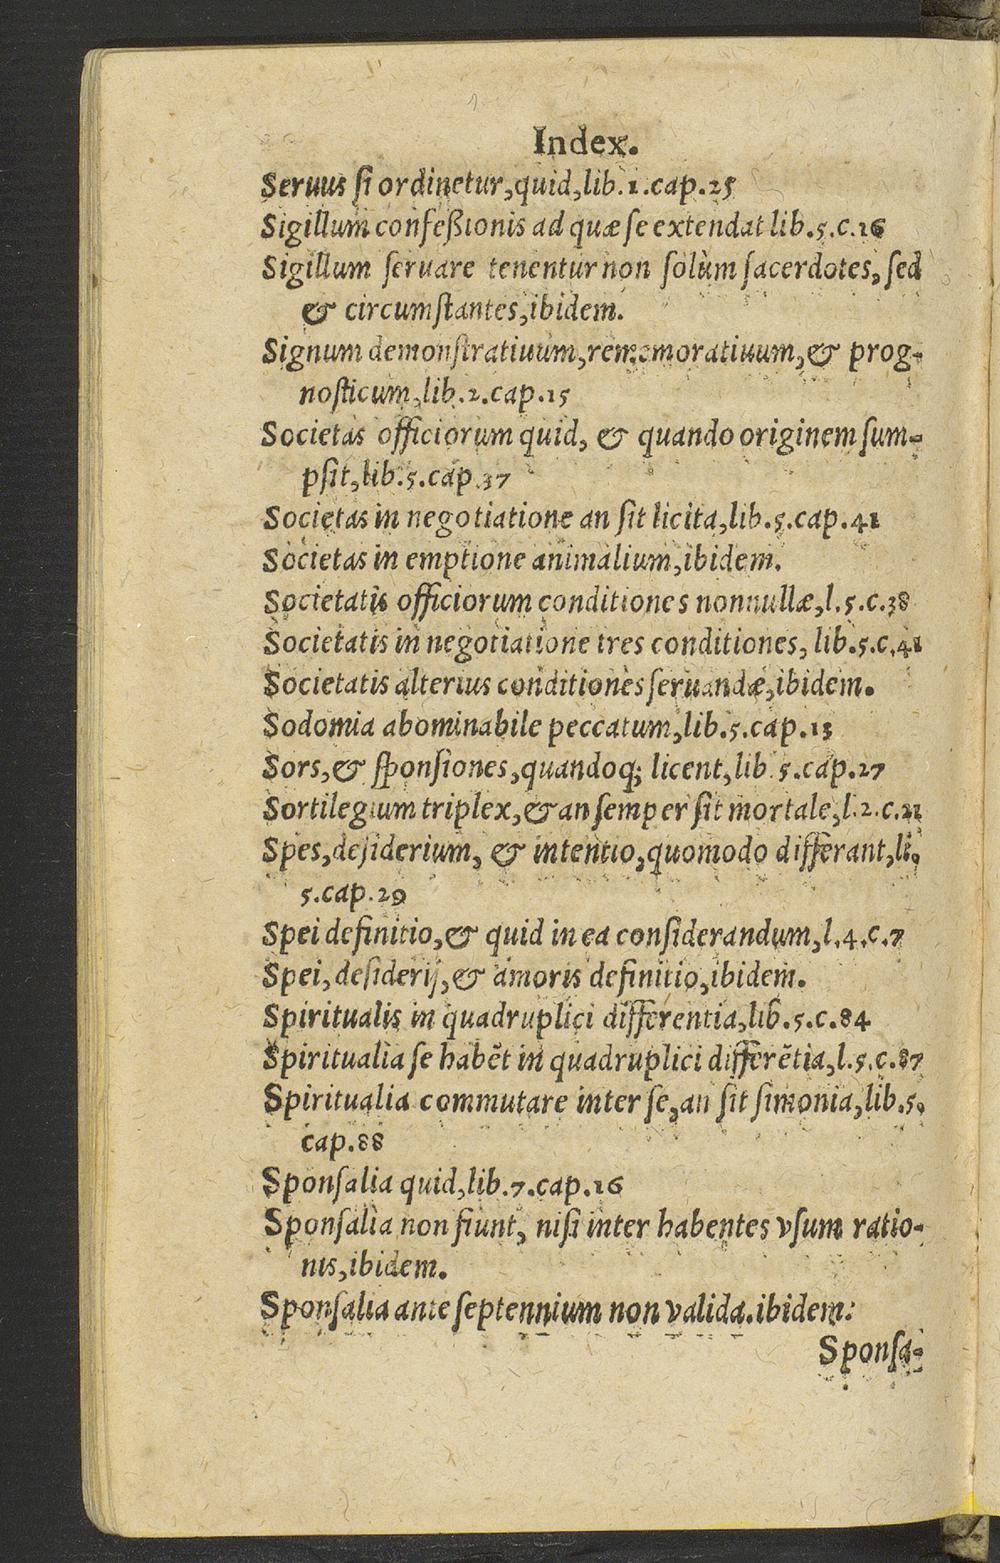 Index.
Seruus ſi ordinetur,quid,lib.1.cap.25
Sigillum confeßionis ad quæ ſe extendat lib.5.c.16
Sigillum ſeruare tenentur non ſolùm ſacerdotes, ſed
& circumſtantes,ibidem.
Signum demonſtratiuum,rememoratiuum,& prog-
noſticum,lib.2.cap.15
Societas officiorum quid, & quando originem ſum-
pſit,lib.5.cap.37
Societas in negotiatione an ſit licita,lib.5.cap.41
Societas in emptione animalium,ibidem.
Societatis officiorum conditiones nonnullæ,l.5.c.38
Societatis in negotiatione tres conditiones, lib.5.c.41
Societatis alterius conditiones ſeruandæ,ibidem.
Sodomia abominabile peccatum,lib.5.cap.13
Sors,& ſponſiones,quandoq; licent,lib.5.cap.27
Sortilegium triplex,& an ſemper ſit mortale,l.2.c.21
Spes,deſiderium, & intentio,quomodo differant,li.
5.cap.29
Spei definitio,& quid in ea conſiderandum,l.4.c.7
Spei, deſiderij,& amoris definitio,ibidem.
Spiritualis in quadruplici differentia,lib.5.c.84
Spiritualia ſe habẽt in quadruplici differẽtia,l.5.c.87
Spiritualia commutare inter ſe,an ſit ſimonia,lib.5.
cap.88
Sponſalia quid,lib.7.cap.16
Sponſalia non fiunt, niſi inter habentes vſum ratio-
nis,ibidem.
Sponſalia ante ſeptennium non valida.ibidem:
Sponſa-